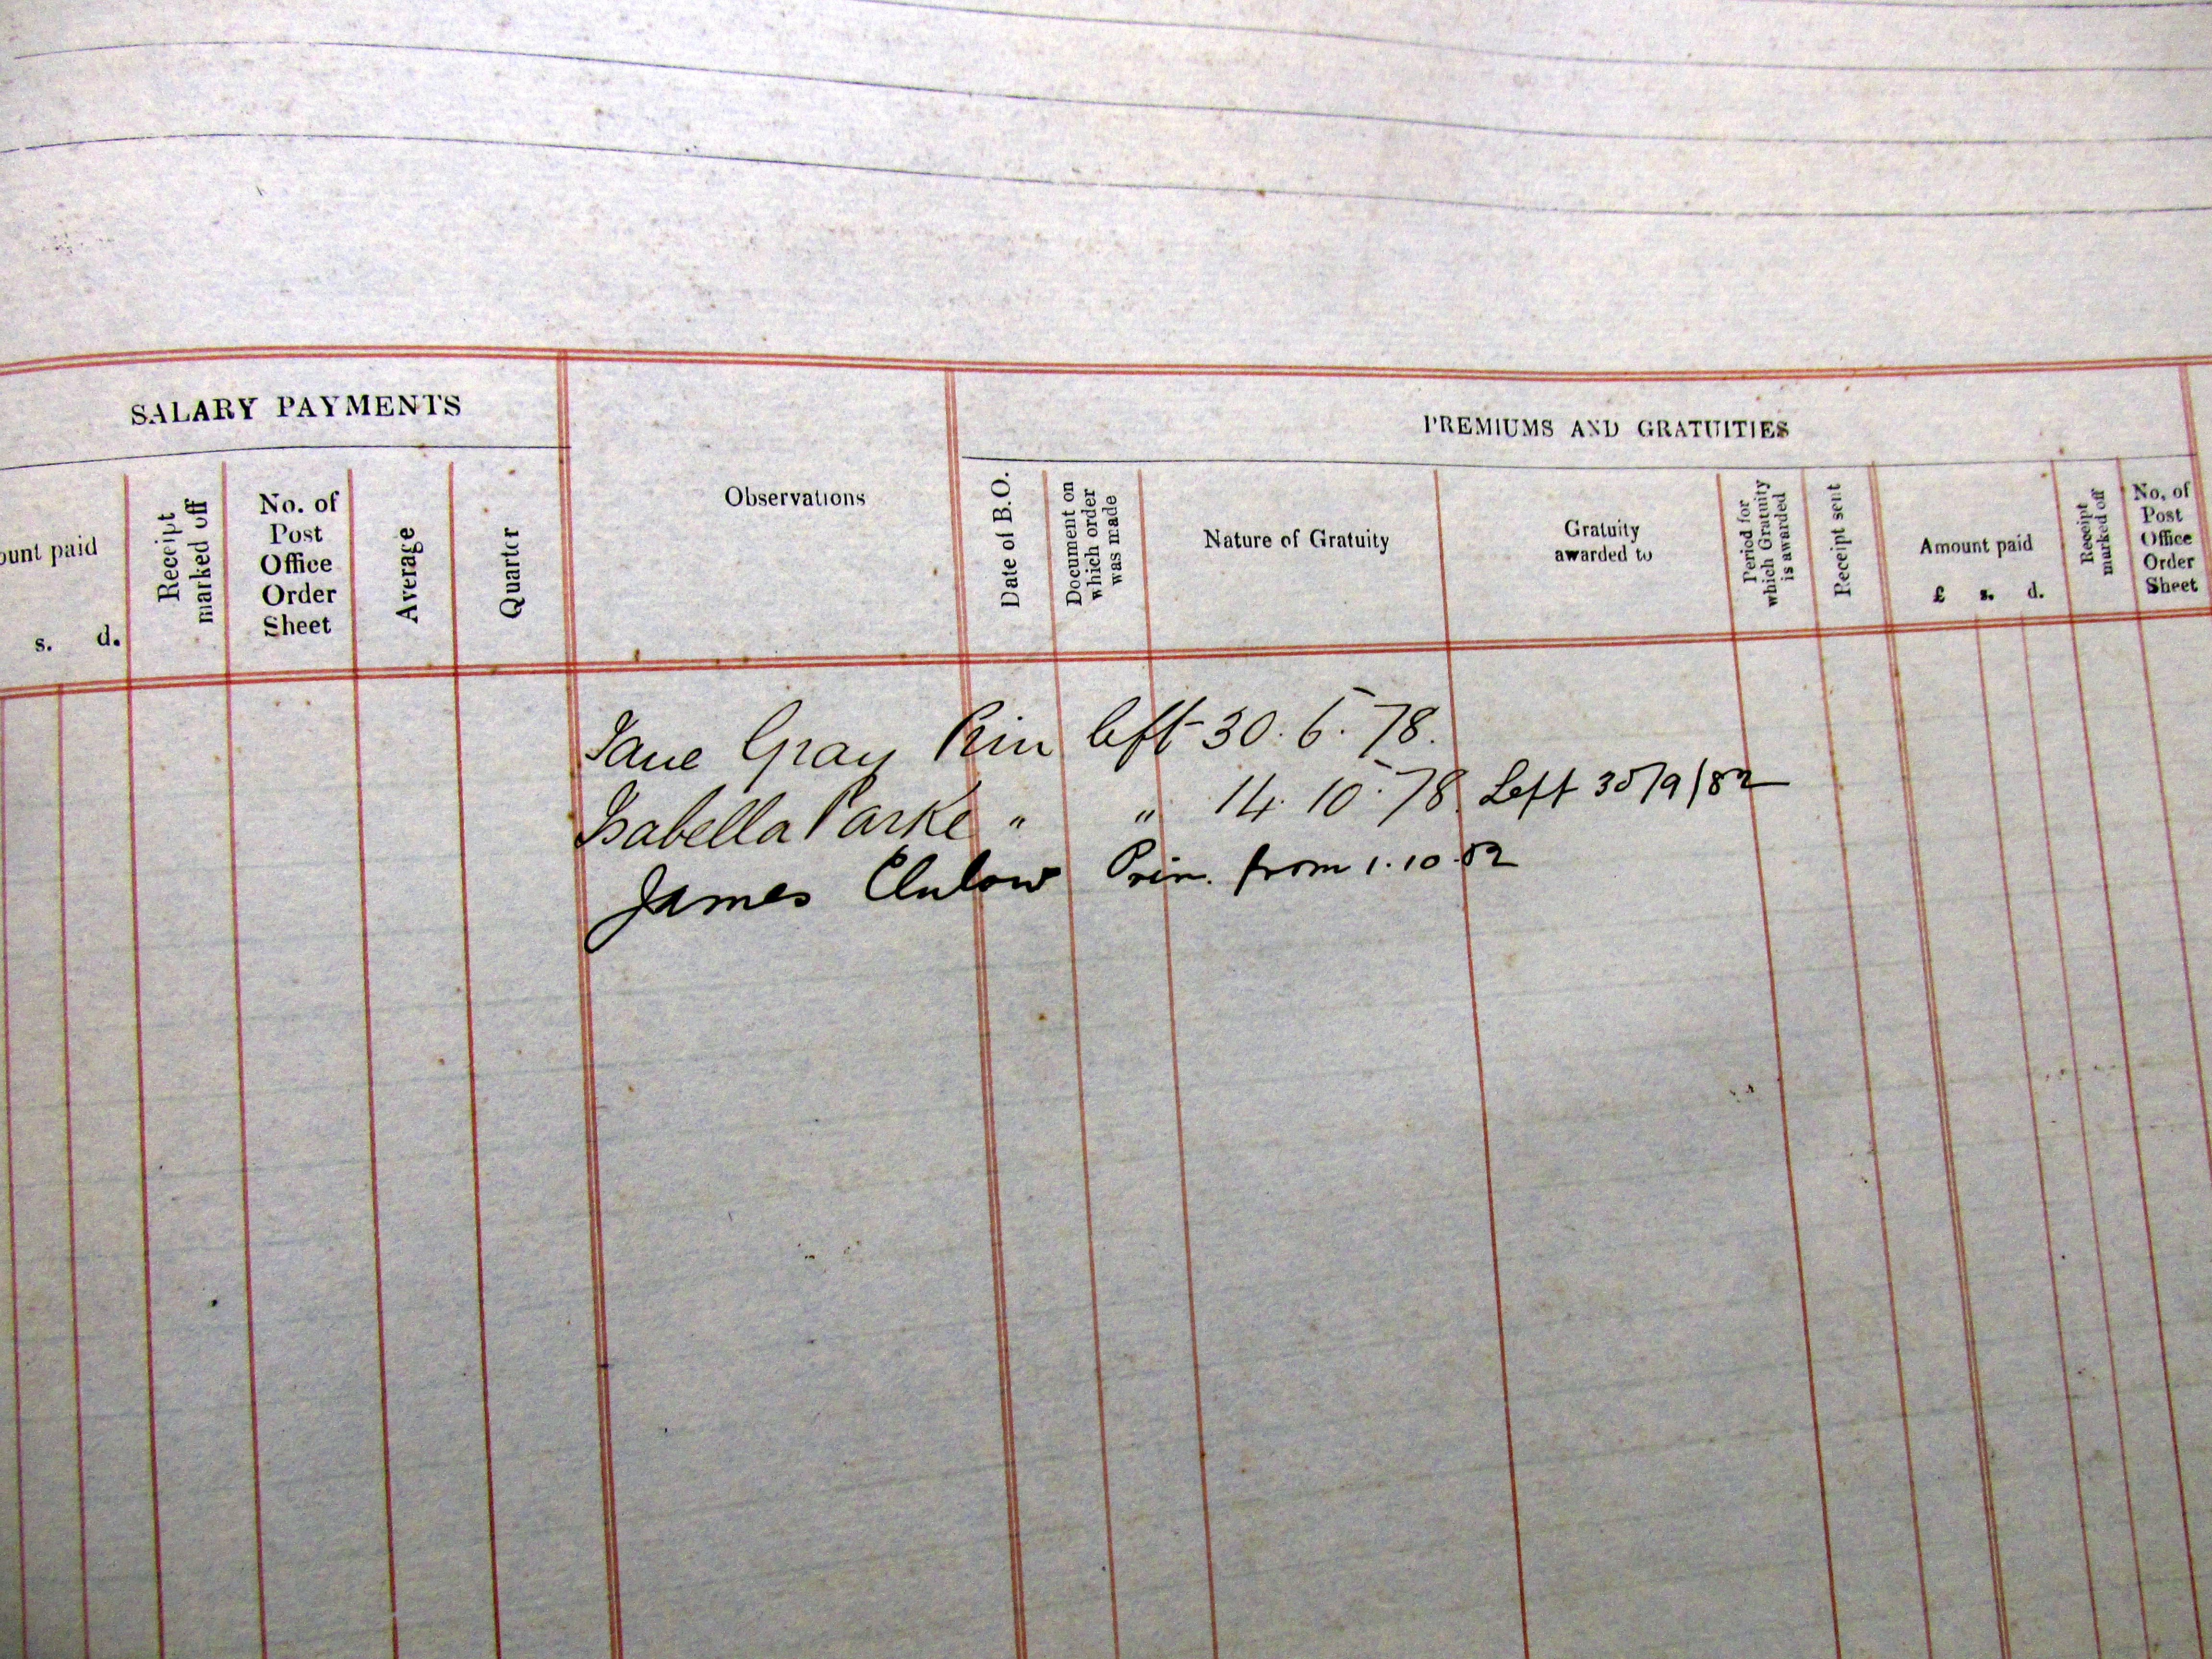 SALARY PAYMENTS
ount paid
s. d.
Receipt
marked off
No. of
Post
Office
Order
Sheet
Average
Quarter
Observations
PREMIUMS AND GRATUITIES
Date of B.O.
Document on
which order
was made
Nature of Gratuity
Gratuity
awarded to
Period for
which Gratuity
is awarded
Receipt sent
Amount paid
£ s. d.
Receipt
marked off
No. of
Post
Office
Order
Sheet
Jane Gray Prin left 30. 6. 78.
Isabella Parke " " 14. 10. 78. Left 30/9/82
James Clulow Prin. from 1.10.82